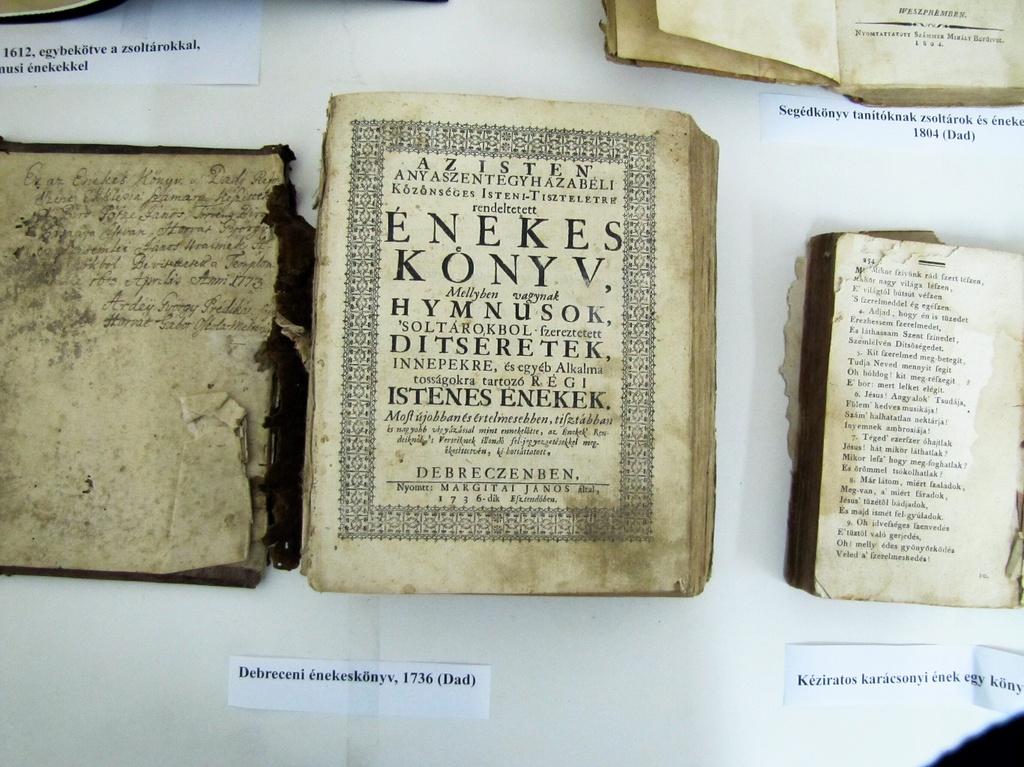 1612, egybekötve a zsoltárokkal,
musi énekekkel
WESZPRÉMBEN.
NYOMTATTATOTT SZÁMMER MIHÁLY BETŰIVEL
1804.
Segédkönyv tanítóknak zsoltárok és éneke
1804 (Dad)
Ez az Enekes Könyv a Dadi
János
István Horvát György
János
Templom
Április Ann 1773
Ordey György
Horvat Gabor
AZ ISTEN'
ANYASZENTEGYHÁZABÉLI
KÖZÖNSÉGES ISTENI-TISZTELETRE
rendeltetett
ÉNEKES
KÖNYV,
Mellyben vagynak
HYMNUSOK,
'SOLTÁROKBOL-szereztetett
DITSÉRETEK,
INNEPEKRE, és egyéb Alkalma
tosságokra tartozó RÉGI
ISTENES ENEKEK.
Most újobban és értelmesebben, tisztábban
és nagyobb vigyázással mint ennekelötte, az Énekek' Ren-
deiknek,'s Verseiknek illendő fel-jegyzegetésekkel meg-
ékesíttetvén, ki-botsáttatott,
DEBRECZENBEN,
Nyomtt: MARGITAI JÁNOS által,
1736-dik Esztendőben.
254
M' Mikor szivünk rád szert tészen,
Mikor nagy világa lészen,
E' világtól bútsút vészen
'S szerelmeddel ég egészen.
4. Adjad, hogy én is tüzedet
Érezhessem szerelmedet,
És láthassam Szent színedet,
Szemlélvén Ditsőségedet.
5. Kit szerelmed meg-betegít,
Tudja Neved mennyit segít
Oh bóldog! kit meg-részegít
E' bor: mert lelket elégít.
6. Jésus! Angyalok' Tsudája,
Fülem' kedves musikája!
Szám' halhatatlan nektárja!
Ínyemnek ambrosiája!
7. Téged' ezerszer óhajtlak
Jésus! hát mikor láthatlak?
Mikor lesz' hogy meg-foghatlak?
És örömmel tsókolhatlak?
8. Már látom, miért szaladok,
Meg-van, a' miért fáradok,
Jésus' tüzétől bádjadok,
És majd ismét fel-gyúladok.
9. Oh idvességes szenvedés
E' tüztől való gerjedés,
Oh! melly édes gyönyörködés
Veled a' szerelmeskedés!
Debreceni énekeskönyv, 1736 (Dad)
Kéziratos karácsonyi ének egy köny